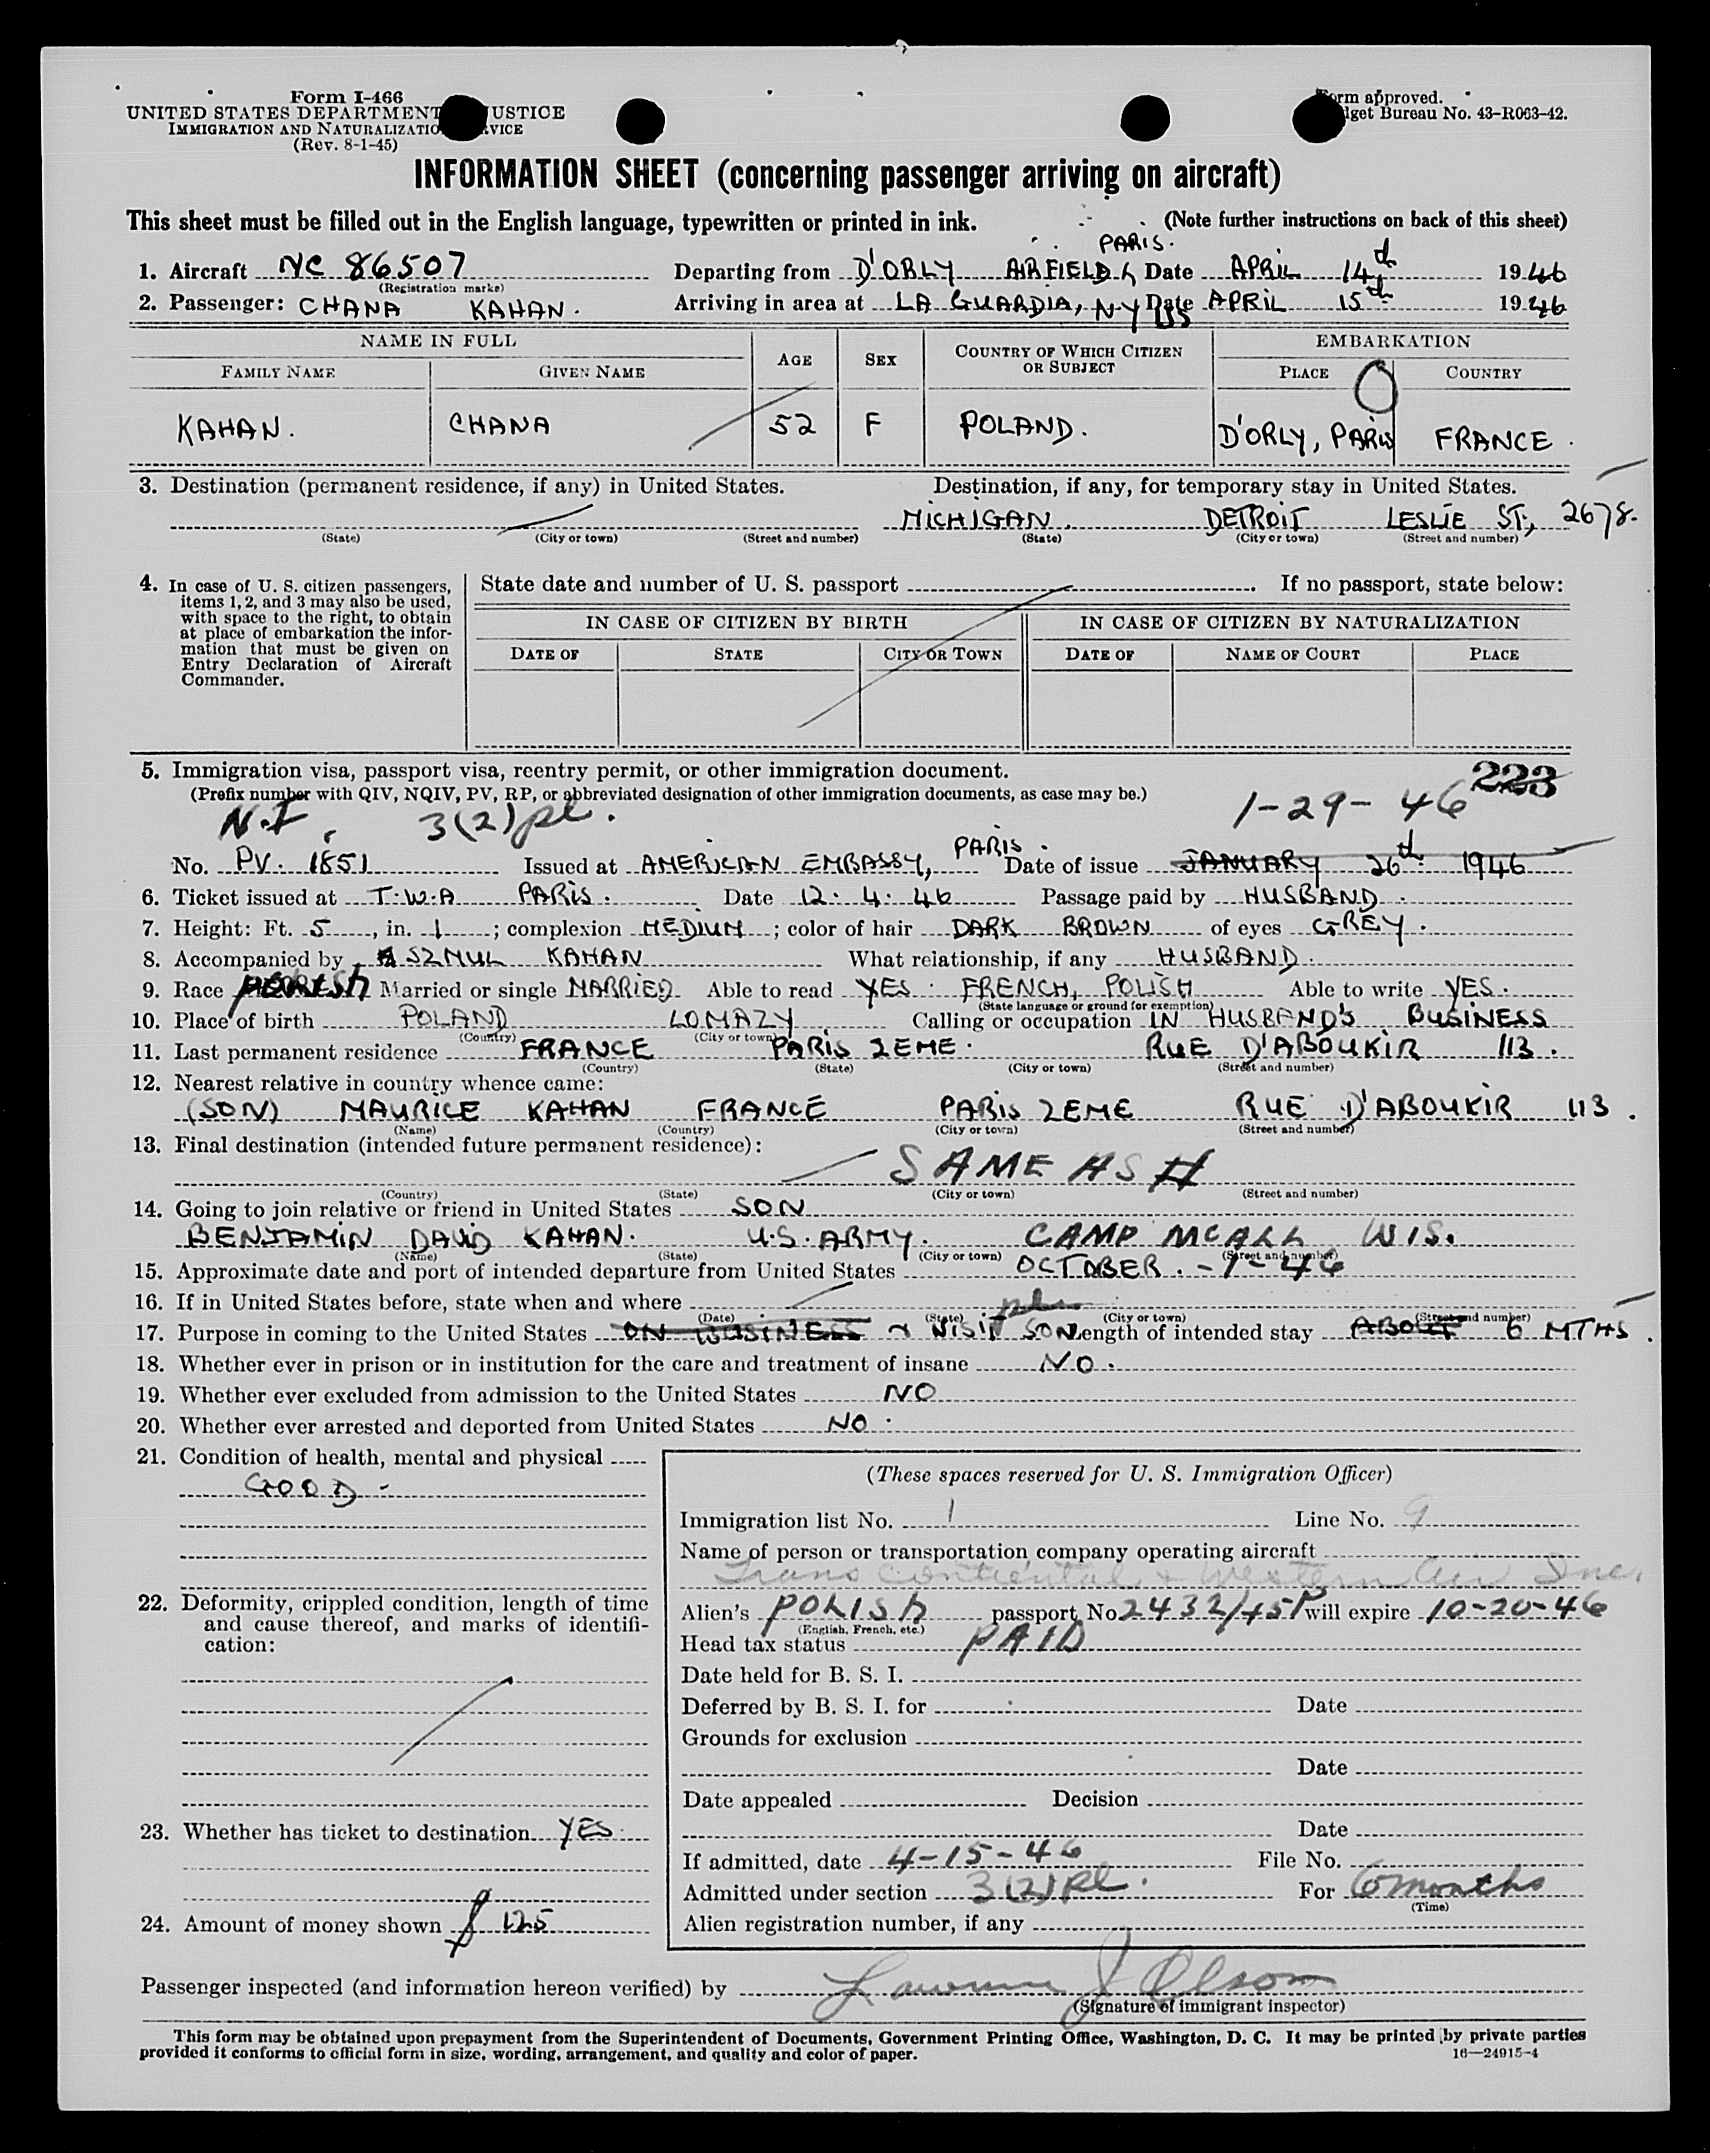 Form I-466
UNITED STATES DEPARTMENT USTICE
IMMIGRATION AND NATURALIZATIO VICE
(Rev. 8-1-45)
orm approved.
dget Bureau No. 43-R063-42.
INFORMATION SHEET (concerning passenger arriving on aircraft)
This sheet must be filled out in the English language, typewritten or printed in ink. (Note further instructions on back of this sheet)
PARIS.
1. Aircraft NC 86507 Departing from D'ORLY AIRFIELD Date APRIL 14th 1946
(Registration marks)
2. Passenger: CHANA KAHAN. Arriving in area at LA GUARDIA, N-Y Date APRIL 15th 1946
NAME IN FULL AGE SEX COUNTRY OF WHICH CITIZEN OR SUBJECT EMBARKATION
FAMILY NAME GIVEN NAME PLACE COUNTRY
KAHAN. CHANA 52 F POLAND. D'ORLY, PARIS FRANCE.
3. Destination (permanent residence, if any) in United States. Destination, if any, for temporary stay in United States.
MICHIGAN. DETROIT LESLIE ST., 2678.
(State) (City or town) (Street and number) (State) (City or town) (Street and number)
4. In case of U. S. citizen passengers, items 1, 2, and 3 may also be used, with space to the right, to obtain at place of embarkation the information that must be given on Entry Declaration of Aircraft Commander.
State date and number of U. S. passport . If no passport, state below:
IN CASE OF CITIZEN BY BIRTH IN CASE OF CITIZEN BY NATURALIZATION
DATE OF STATE CITY OR TOWN DATE OF NAME OF COURT PLACE
5. Immigration visa, passport visa, reentry permit, or other immigration document.
(Prefix number with QIV, NQIV, PV, RP, or abbreviated designation of other immigration documents, as case may be.)
N.I. 3(2)pl. 1-29-46 223
PARIS.
No. PV. 1851 Issued at AMERICAN EMBASSY, Date of issue JANUARY 26th 1946
6. Ticket issued at T.W.A PARIS. Date 12.4.46 Passage paid by HUSBAND.
7. Height: Ft. 5, in. 1; complexion MEDIUM; color of hair DARK BROWN of eyes GREY.
8. Accompanied by SZMUL KAHAN What relationship, if any HUSBAND.
9. Race POLISH Married or single MARRIED Able to read YES. FRENCH, POLISH Able to write YES.
(State language or ground for exemption)
10. Place of birth POLAND LOMAZY Calling or occupation IN HUSBAND'S BUSINESS
(Country) (City or town)
11. Last permanent residence FRANCE PARIS 2EME. RUE D'ABOUKIR 113.
(Country) (State) (City or town) (Street and number)
12. Nearest relative in country whence came:
(SON) MAURICE KAHAN FRANCE PARIS 2EME RUE D'ABOUKIR 113.
(Name) (Country) (City or town) (Street and number)
13. Final destination (intended future permanent residence):
SAME AS #
(Country) (State) (City or town) (Street and number)
14. Going to join relative or friend in United States SON
BENJAMIN DAVID KAHAN. U.S. ARMY. CAMP MCALL WIS.
(Name) (State) (City or town) (Street and number)
15. Approximate date and port of intended departure from United States OCTOBER. -1-46
16. If in United States before, state when and where
(Date) (State) (City or town) (Street and number)
17. Purpose in coming to the United States ON BUSINESS & VISIT SON Length of intended stay ABOUT 6 MTHS.
18. Whether ever in prison or in institution for the care and treatment of insane NO.
19. Whether ever excluded from admission to the United States NO
20. Whether ever arrested and deported from United States NO.
21. Condition of health, mental and physical
GOOD -
22. Deformity, crippled condition, length of time and cause thereof, and marks of identification:
23. Whether has ticket to destination YES.
24. Amount of money shown $ 125
(These spaces reserved for U. S. Immigration Officer)
Immigration list No. 1 Line No. 9
Name of person or transportation company operating aircraft
Trans Contiental & Western Air Inc.
Alien's POLISH passport No 2432/45P will expire 10-20-46
(English, French, etc.)
Head tax status PAID
Date held for B. S. I.
Deferred by B. S. I. for Date
Grounds for exclusion
Date
Date appealed Decision
Date
If admitted, date 4-15-46 File No.
Admitted under section 3(2)pl. For 6 months
(Time)
Alien registration number, if any
Passenger inspected (and information hereon verified) by J Olson
(Signature of immigrant inspector)
This form may be obtained upon prepayment from the Superintendent of Documents, Government Printing Office, Washington, D. C. It may be printed by private parties
provided it conforms to official form in size, wording, arrangement, and quality and color of paper. 16—24915-4